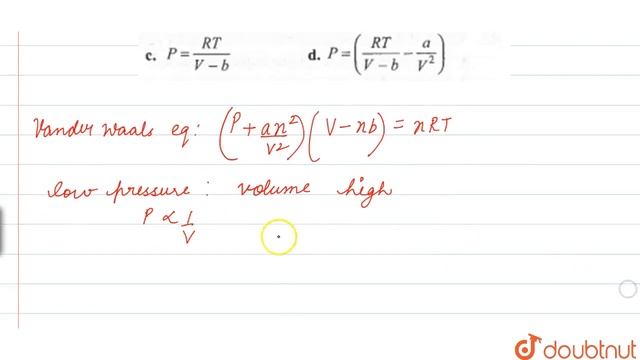 c. P = RT / V − b    d. P = ( RT / V − b − a / V² )
Vander waals eq: ( P + an² / V² ) ( V − nb ) = nRT
low pressure : volume high
P ∝ 1 / V
doubtnut